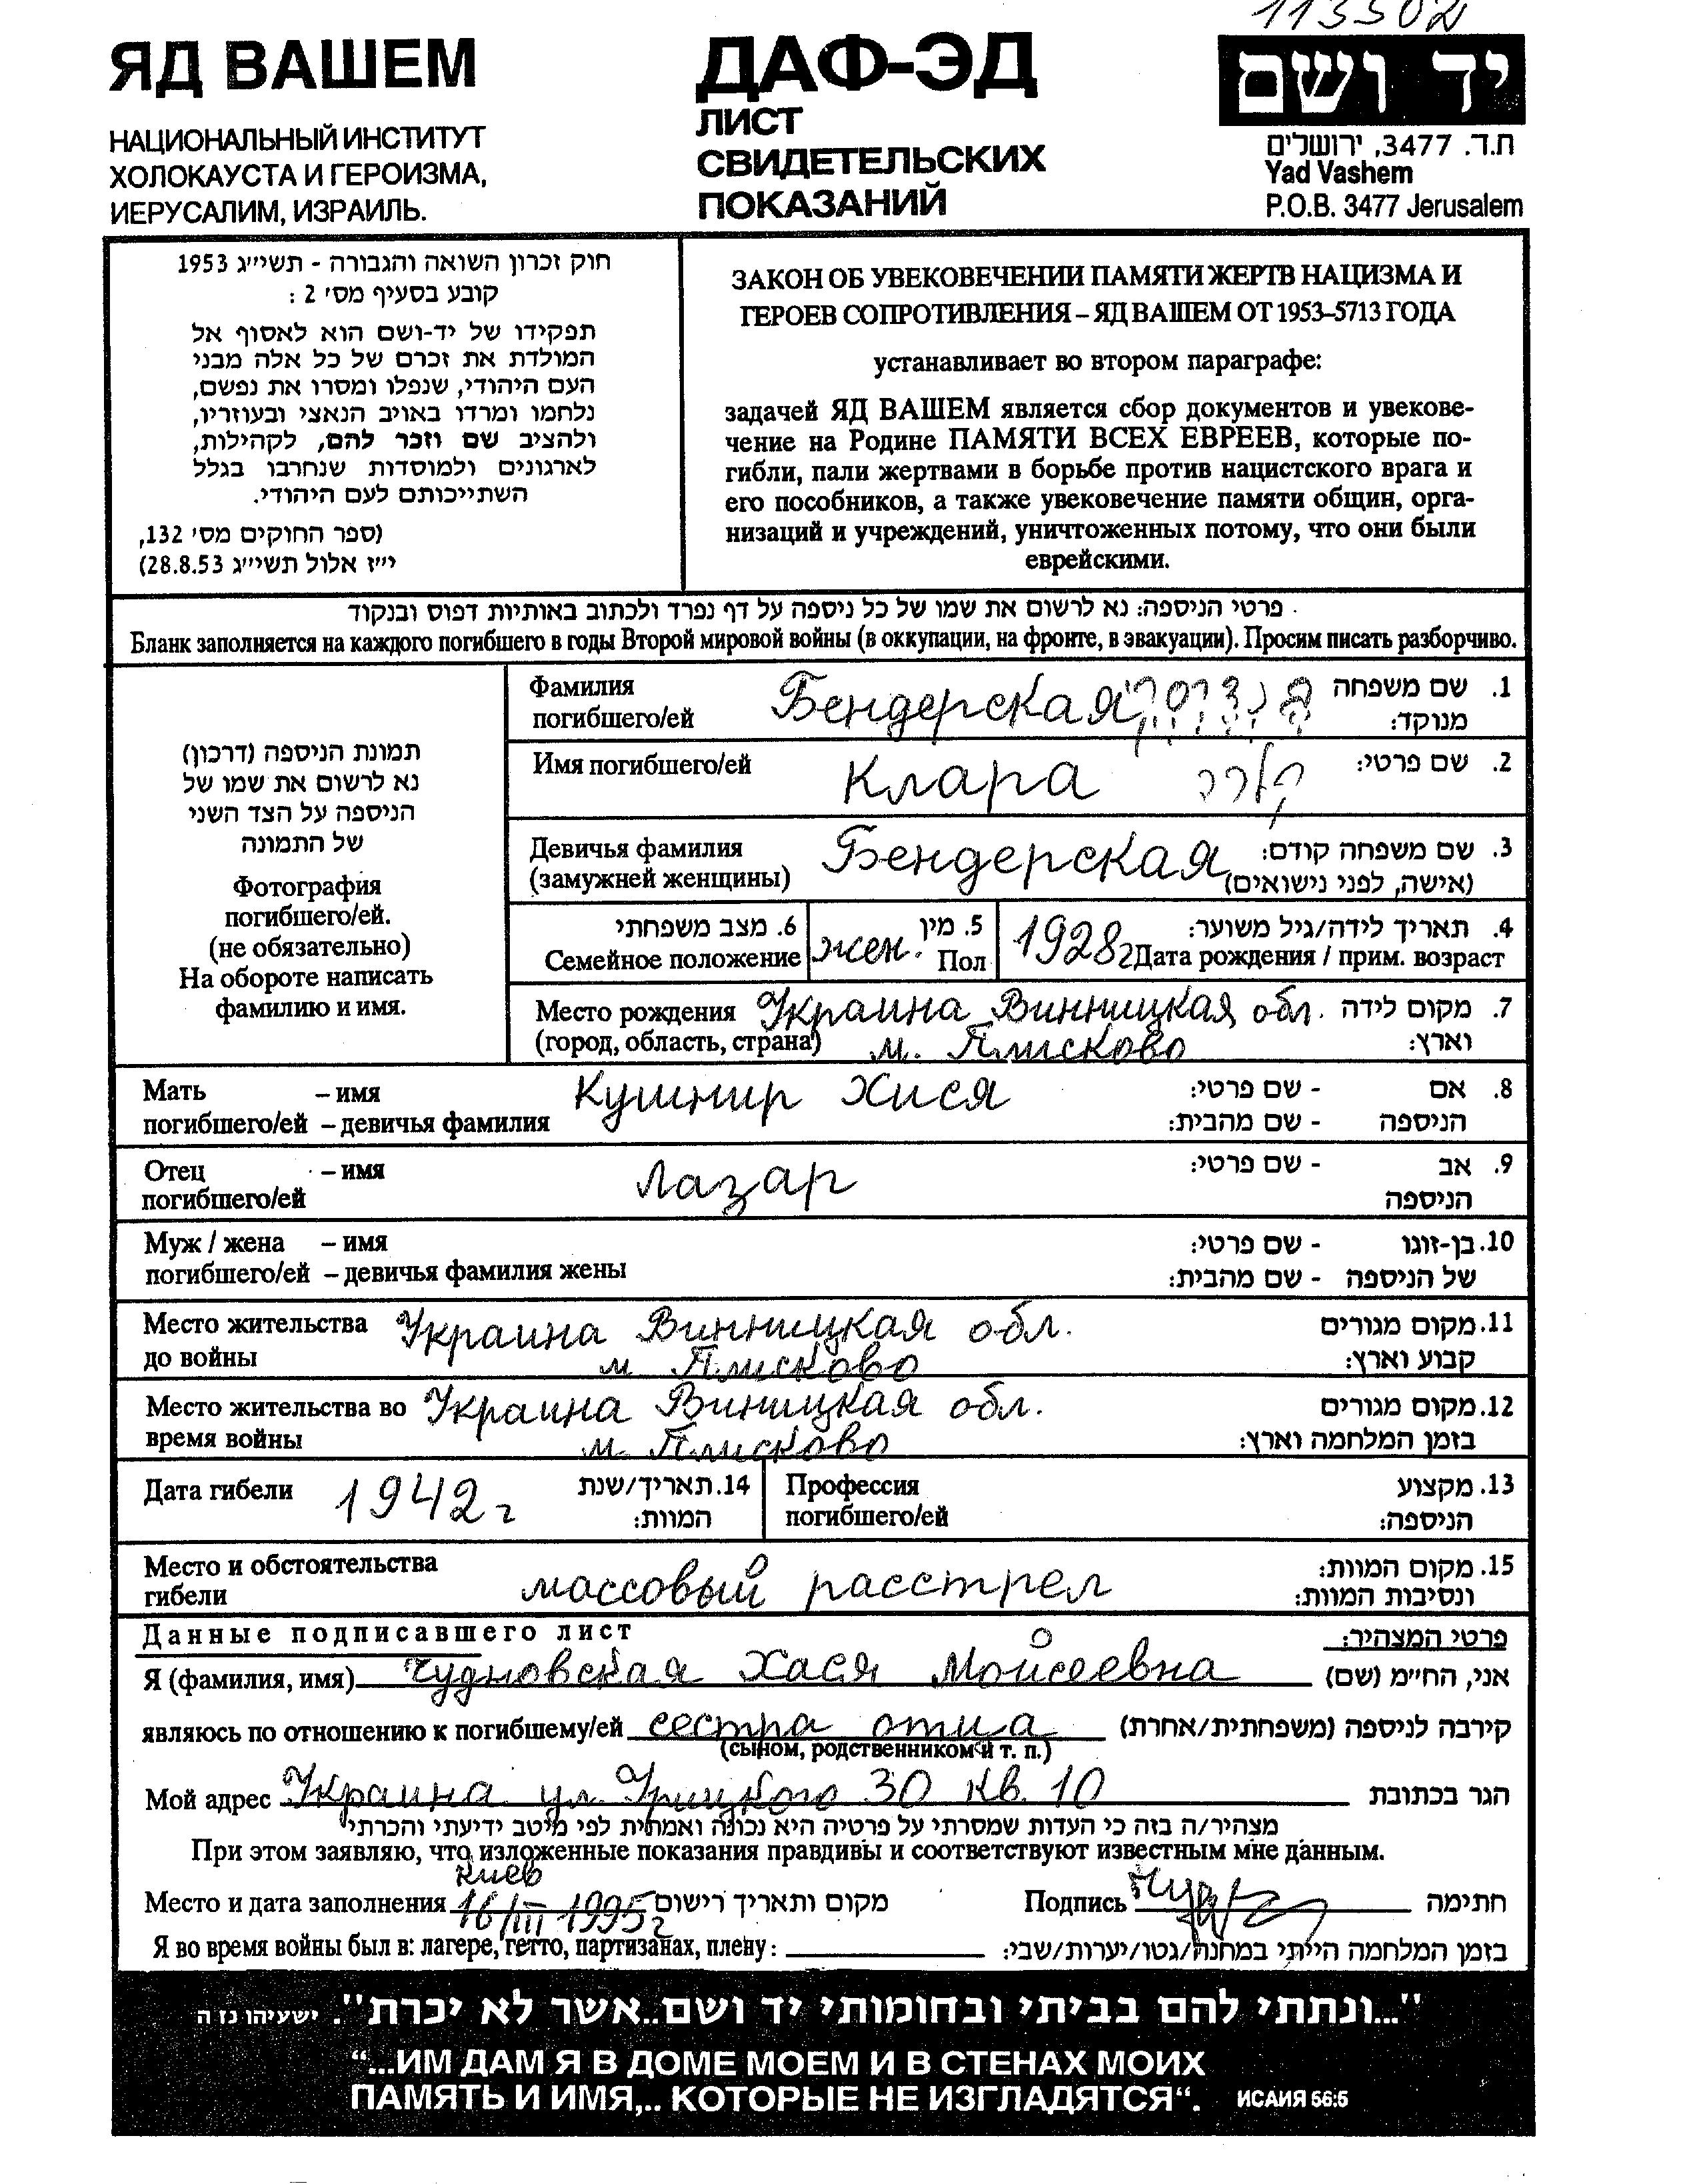 113502
ЯД ВАШЕМ
НАЦИОНАЛЬНЫЙ ИНСТИТУТ
ХОЛОКАУСТА И ГЕРОИЗМА,
ИЕРУСАЛИМ, ИЗРАИЛЬ.
ДАФ-ЭД
ЛИСТ
СВИДЕТЕЛЬСКИХ
ПОКАЗАНИЙ
יד ושם
ת.ד. 3477, ירושלים
Yad Vashem
P.O.B. 3477 Jerusalem
חוק זכרון השואה והגבורה - תשי״ג 1953
קובע בסעיף מס׳ 2 :
תפקידו של יד-ושם הוא לאסוף אל
המולדת את זכרם של כל אלה מבני
העם היהודי, שנפלו ומסרו את נפשם,
נלחמו ומרדו באויב הנאצי ובעוזריו,
ולהציב שם וזכר להם, לקהילות,
לארגונים ולמוסדות שנחרבו בגלל
השתייכותם לעם היהודי.
(ספר החוקים מס׳ 132,
י״ז אלול תשי״ג 28.8.53)
ЗАКОН ОБ УВЕКОВЕЧЕНИИ ПАМЯТИ ЖЕРТВ НАЦИЗМА И
ГЕРОЕВ СОПРОТИВЛЕНИЯ – ЯД ВАШЕМ ОТ 1953–5713 ГОДА
устанавливает во втором параграфе:
задачей ЯД ВАШЕМ является сбор документов и увекове-
чение на Родине ПАМЯТИ ВСЕХ ЕВРЕЕВ, которые по-
гибли, пали жертвами в борьбе против нацистского врага и
его пособников, а также увековечение памяти общин, орга-
низаций и учреждений, уничтоженных потому, что они были
еврейскими.
פרטי הניספה: נא לרשום את שמו של כל ניספה על דף נפרד ולכתוב באותיות דפוס ובנקוד
Бланк заполняется на каждого погибшего в годы Второй мировой войны (в оккупации, на фронте, в эвакуации). Просим писать разборчиво.
תמונת הניספה (דרכון)
נא לרשום את שמו של
הניספה על הצד השני
של התמונה
Фотография
погибшего/ей.
(не обязательно)
На обороте написать
фамилию и имя.
Фамилия Бендерская בנדרסקי 1. שם משפחה
погибшего/ей מנוקד:
Имя погибшего/ей Клара קלרה 2. שם פרטי:
Девичья фамилия Бендерская 3. שם משפחה קודם:
(замужней женщины) (אישה, לפני נישואים)
6. מצב משפחתי 5. מין 4. תאריך לידה/גיל משוער:
Семейное положение жен. Пол 1928г Дата рождения / прим. возраст
Место рождения Украина Винницкая обл. 7. מקום לידה
(город, область, страна) м. Плисково וארץ:
Мать – имя Кушнир Хися 8. אם - שם פרטי:
погибшего/ей – девичья фамилия הניספה - שם מהבית:
Отец – имя Лазар 9. אב - שם פרטי:
погибшего/ей הניספה
Муж / жена – имя 10. בן-זוגו - שם פרטי:
погибшего/ей – девичья фамилия жены של הניספה - שם מהבית:
Место жительства Украина Винницкая обл. 11. מקום מגורים
до войны м Плисково קבוע וארץ:
Место жительства во Украина Виницкая обл. 12. מקום מגורים
время войны м. Плисково בזמן המלחמה וארץ:
Дата гибели 1942г 14. תאריך/שנת Профессия 13. מקצוע
המוות: погибшего/ей הניספה:
Место и обстоятельства 15. מקום המוות:
гибели массовый расстрел ונסיבות המוות:
Данные подписавшего лист פרטי המצהיר:
Я (фамилия, имя) Чудновская Хася Мойсеевна אני, החי״מ (שם)
являюсь по отношению к погибшему/ей сестра отца קירבה לניספה (משפחתית/אחרת)
(сыном, родственником и т. п.)
Мой адрес Украина ул. Урицкого 30 кв. 10 הגר בכתובת
מצהיר/ה בזה כי העדות שמסרתי על פרטיה היא נכונה ואמתית לפי מיטב ידיעתי והכרתי
При этом заявляю, что изложенные показания правдивы и соответствуют известным мне данным.
Киев
Место и дата заполнения 16/III 1995г מקום ותאריך רישום Подпись חתימה
Я во время войны был в: лагере, гетто, партизанах, плену: בזמן המלחמה הייתי במחנה/גטו/יערות/שבי:
"...ונתתי להם בביתי ובחומותי יד ושם..אשר לא יכרת". ישעיהו נו ה
“...ИМ ДАМ Я В ДОМЕ МОЕМ И В СТЕНАХ МОИХ
ПАМЯТЬ И ИМЯ,.. КОТОРЫЕ НЕ ИЗГЛАДЯТСЯ“. ИСАИЯ 56:5